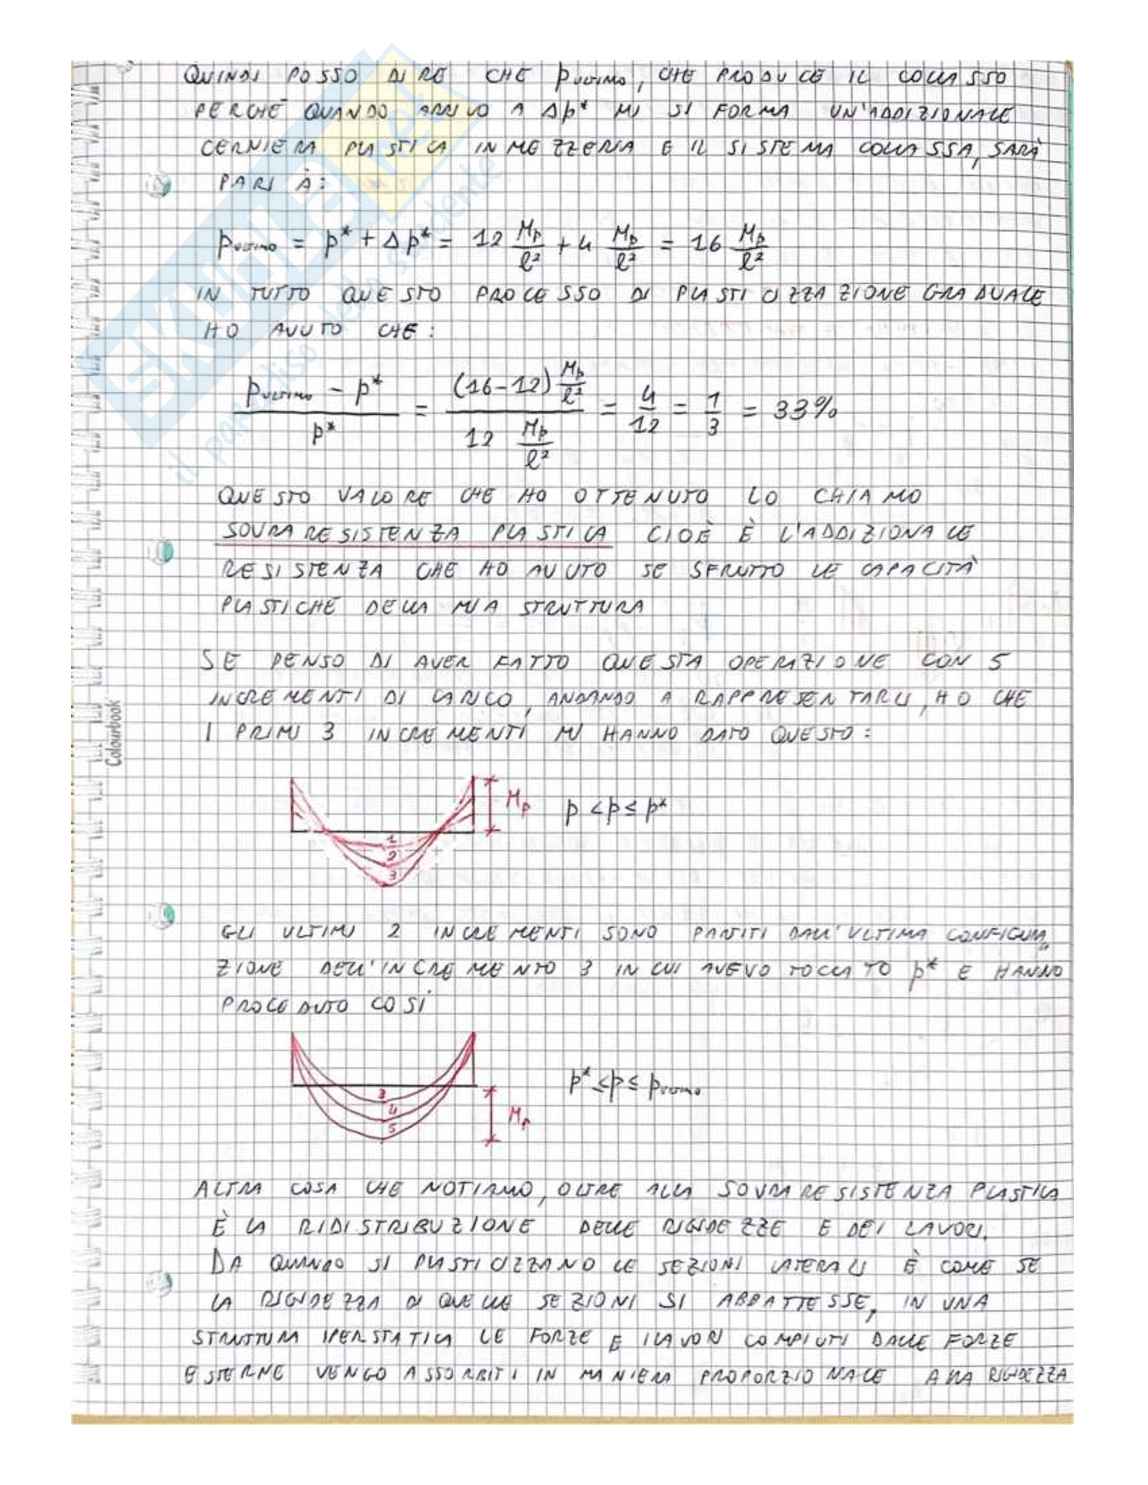 QUINDI POSSO DIRE CHE pultimo, CHE PRODUCE IL COLLASSO
PERCHÈ QUANDO ARRIVO A Δp* MI SI FORMA UN'ADDIZIONALE
CERNIERA PLASTICA IN MEZZERIA E IL SISTEMA COLLASSA, SARÀ
PARI À:
pultimo = p* + Δp* = 12 Mp/l² + 4 Mp/l² = 16 Mp/l²
IN TUTTO QUESTO PROCESSO DI PLASTICIZZAZIONE GRADUALE
HO AVUTO CHE:
(pultimo - p*)/p* = ((16-12) Mp/l²)/(12 Mp/l²) = 4/12 = 1/3 = 33%
QUESTO VALORE CHE HO OTTENUTO LO CHIAMO
SOVRARESISTENZA PLASTICA CIOÈ È L'ADDIZIONALE
RESISTENZA CHE HO AVUTO SE SFRUTTO LE CAPACITÀ
PLASTICHE DELLA MIA STRUTTURA
SE PENSO DI AVER FATTO QUESTA OPERAZIONE CON 5
INCREMENTI DI CARICO, ANDANDO A RAPPRESENTARLI, HO CHE
I PRIMI 3 INCREMENTI MI HANNO DATO QUESTO:
1
2
3
Mp
p < p ≤ p*
GLI ULTIMI 2 INCREMENTI SONO PARTITI DALL'ULTIMA CONFIGURA
ZIONE DELL'INCREMENTO 3 IN CUI AVEVO TOCCATO p* E HANNO
PROCEDUTO COSÌ
3
4
5
Mp
p* ≤ p ≤ pultimo
ALTRA COSA CHE NOTIAMO, OLTRE ALLA SOVRARESISTENZA PLASTICA
È LA RIDISTRIBUZIONE DELLE RIGIDEZZE E DEI LAVORI.
DA QUANDO SI PLASTICIZZANO LE SEZIONI LATERALI È COME SE
LA RIGIDEZZA DI QUELLE SEZIONI SI ABBATTESSE, IN UNA
STRUTTURA IPERSTATICA LE FORZE E I LAVORI COMPIUTI DALLE FORZE
ESTERNE VENGO ASSORBITI IN MANIERA PROPORZIONALE ALLA RIGIDEZZA
Colourbook
SKUOLA.net
il paradiso dello studente